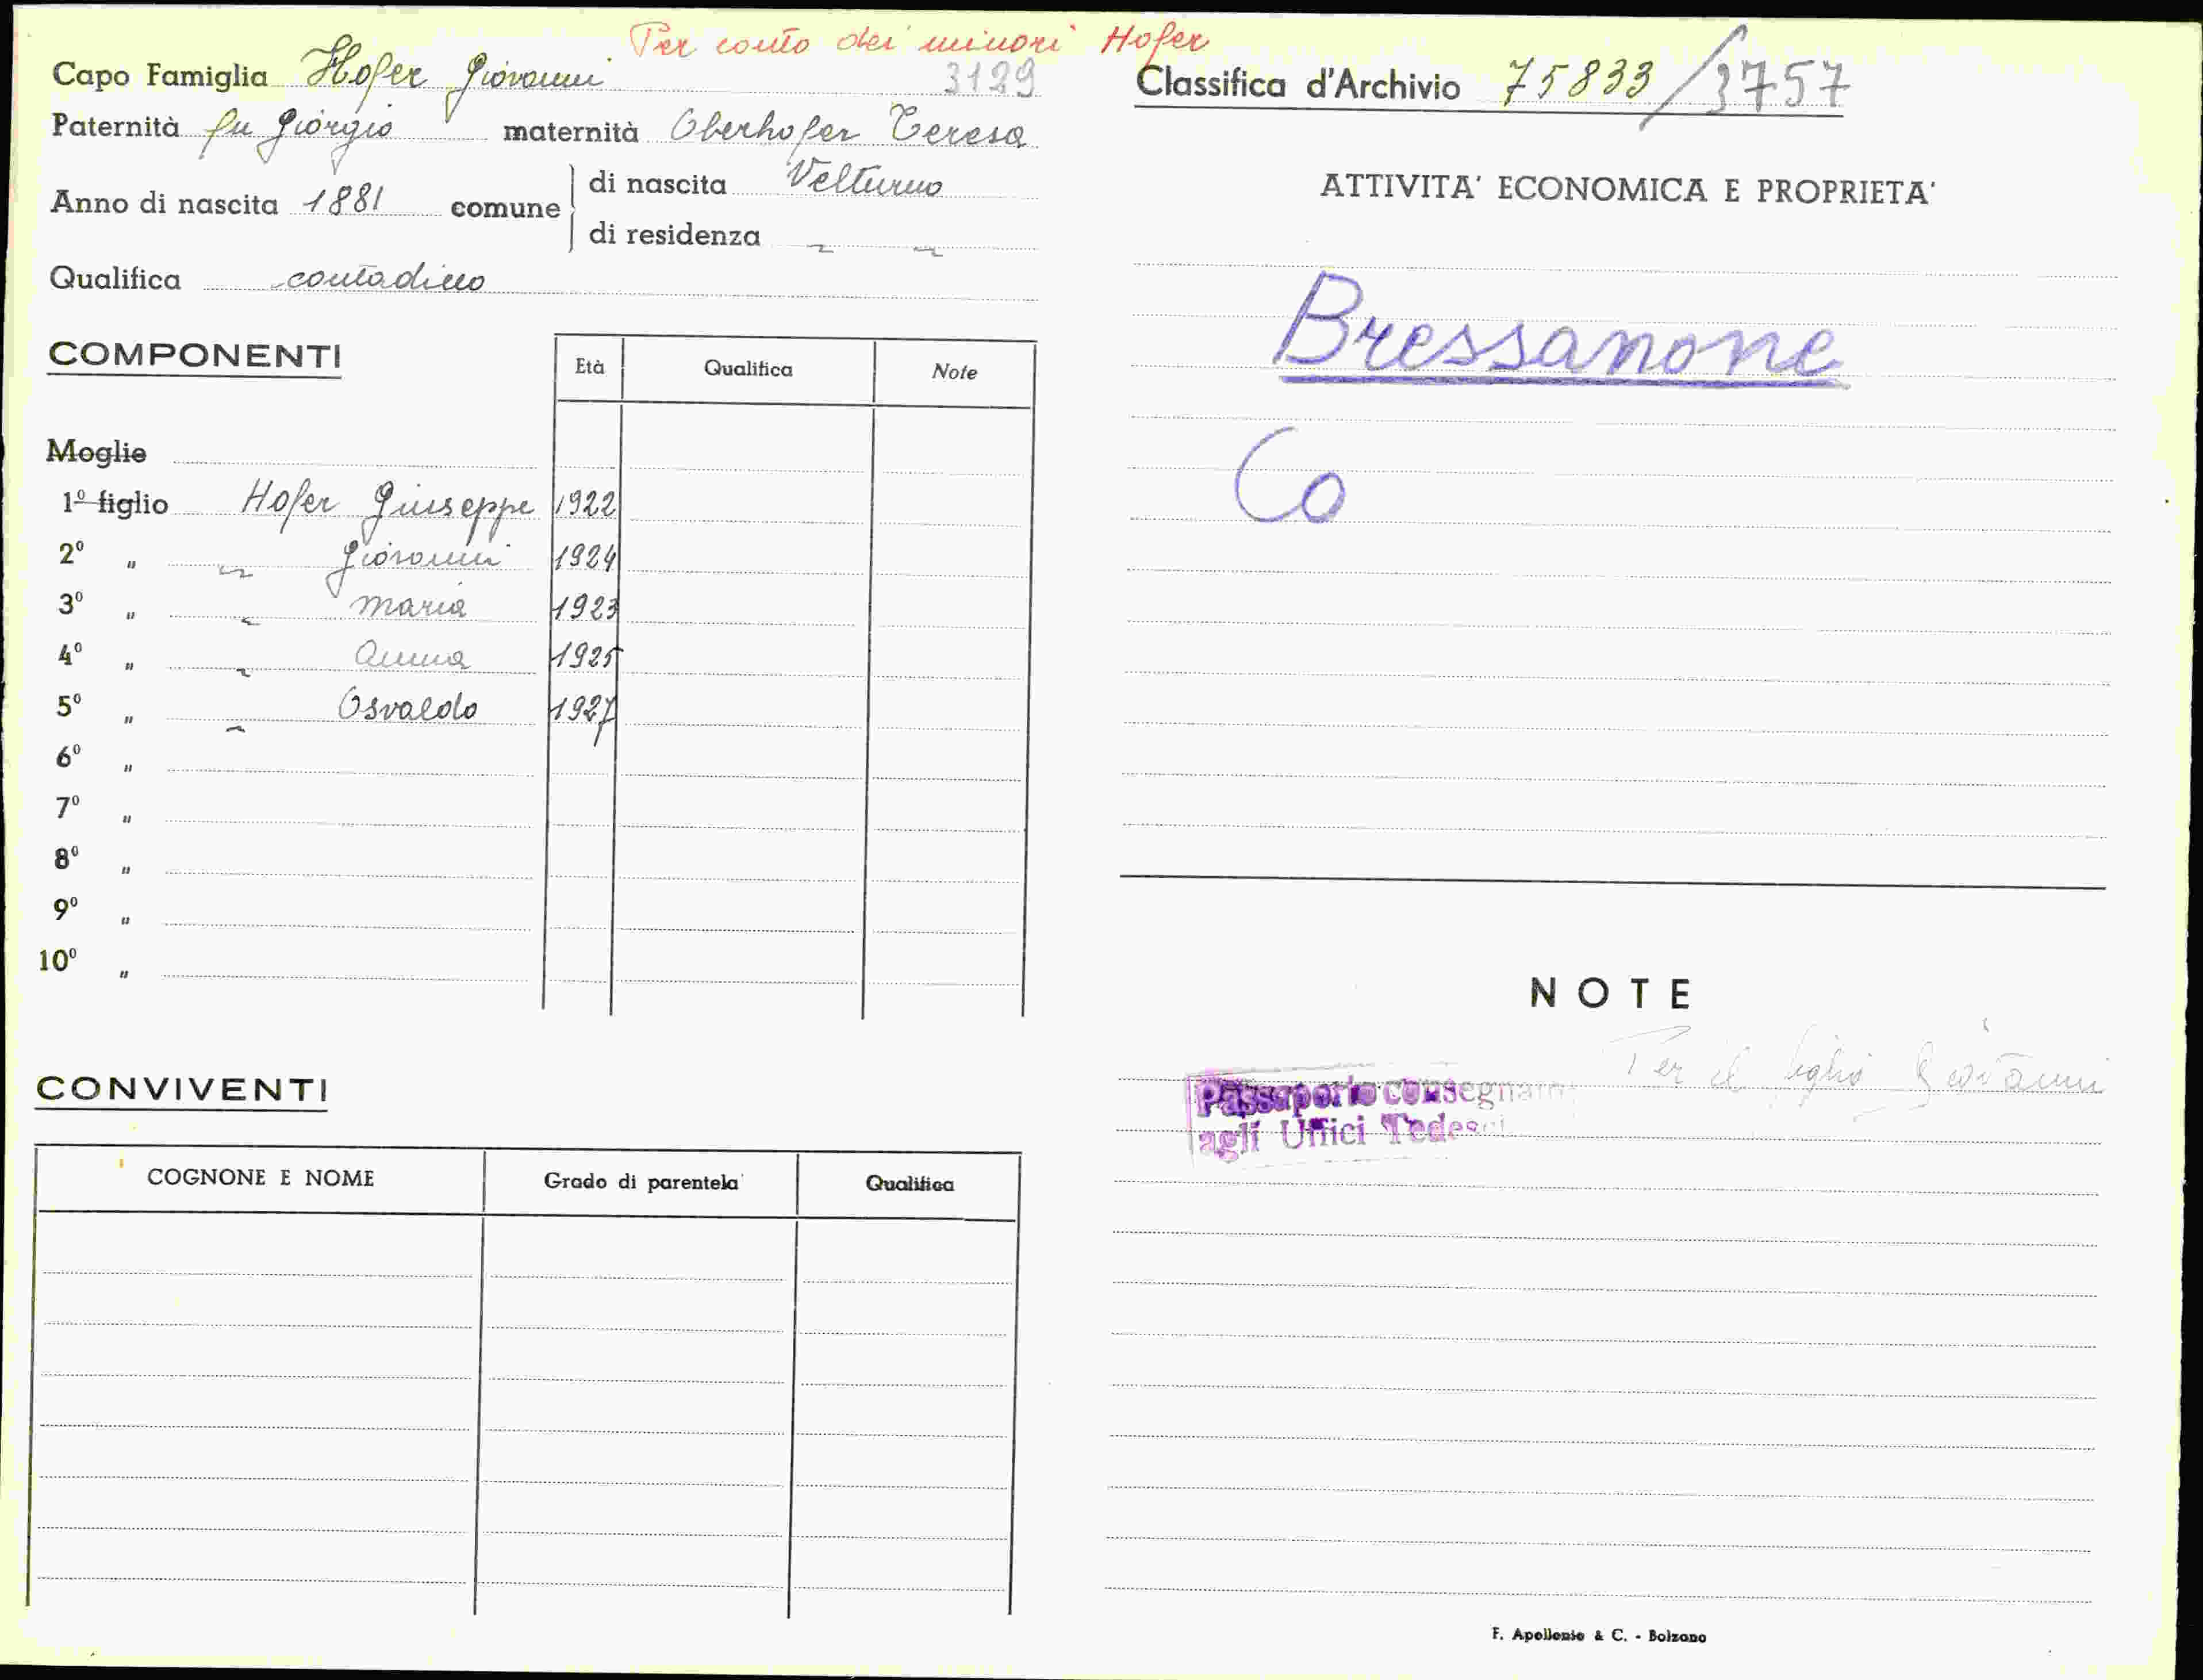 Per conto dei minori Hofer
Capo Famiglia Hofer Giovanni 3129
Paternità fu Giorgio maternità Oberhofer Teresa
Anno di nascita 1881 comune di nascita Velturno
di residenza " "
Qualifica contadino
COMPONENTI Età Qualifica Note
Moglie
1º figlio Hofer Giuseppe 1922
2º " " Giovanni 1924
3º " " Maria 1923
4º " " Anna 1925
5º " " Osvaldo 1927
6º "
7º "
8º "
9º "
10º "
CONVIVENTI
COGNONE E NOME Grado di parentela Qualifica
Classifica d'Archivio 75833/3757
ATTIVITA' ECONOMICA E PROPRIETA'
Bressanone
Co
NOTE
Per il figlio Giovanni
Passaporto consegnato
agli Uffici Tedeschi
F. Apollonio & C. - Bolzano